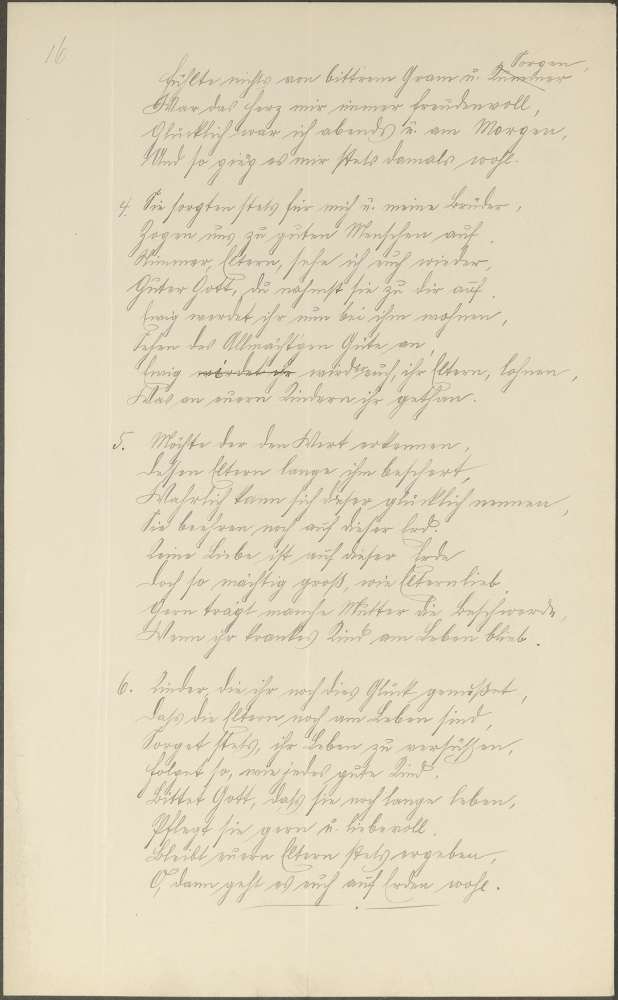 16
Sorgen,
Fühlte nichts von bittrem Gram u. Kummer
War das Herz mir immer freudenvoll,
Glücklich war ich abends u. am Morgen,
Und so ging es mir stets damals wohl.
4. Sie sorgten stets für mich u. meine Brüder,
Zogen uns zu guten Menschen auf.
Nimmer, Eltern, sehe ich euch wieder,
Guter Gott, du nahmst sie zu dir auf.
Ewig werdet ihr nun bei ihm wohnen,
Sehen des Allmächtgen Güte an,
Ewig werdet ihr wird's euch, ihr Eltern, lohnen,
Was an euern Kindern ihr gethan.
5. Möchte der den Wert erkennen,
Dessen Eltern lange ihm beschert,
Wahrlich kann sich dieser glücklich nennen,
Sie beehren noch auf dieser Erd.
Keine Liebe ist auf dieser Erde
Doch so mächtig groß, wie Elternlieb.
Gern tragt manche Mutter die Beschwerde,
Wenn ihr krankes Kind am Leben blieb.
6. Kinder, die ihr noch dies Glück genießet,
Daß die Eltern noch am Leben sind,
Sorget stets, ihr Leben zu versüßen,
Folget so, wie jedes gute Kind.
Bittet Gott, daß sie noch lange leben,
Pflegt sie gern u. liebevoll.
Bleibt euern Eltern stets ergeben,
O, dann geht es euch auf Erden wohl.